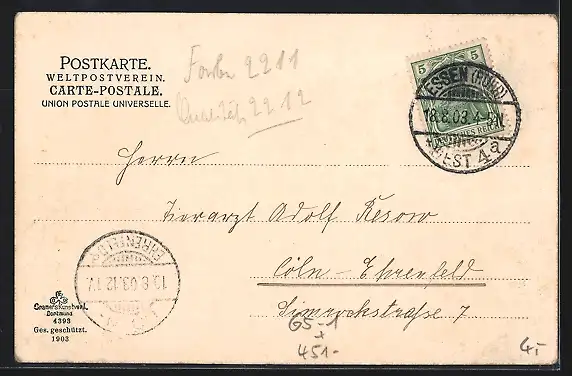 POSTKARTE.
WELTPOSTVEREIN.
CARTE-POSTALE.
UNION POSTALE UNIVERSELLE.
Farben 2211
Qualität 2212
5 5
ESSEN (RUHR)
18.8.03.4-5N
DEUTSCHES REICH
WEST 4a
Herrn
Tierarzt Adolf Kesow
Cöln-Ehrenfeld
Simrockstraße 7
EHRENFELD
12-1V.
Cramers Kunstverl.
Dortmund
4393
Ges. geschützt.
1903
65-1
451-
4,-